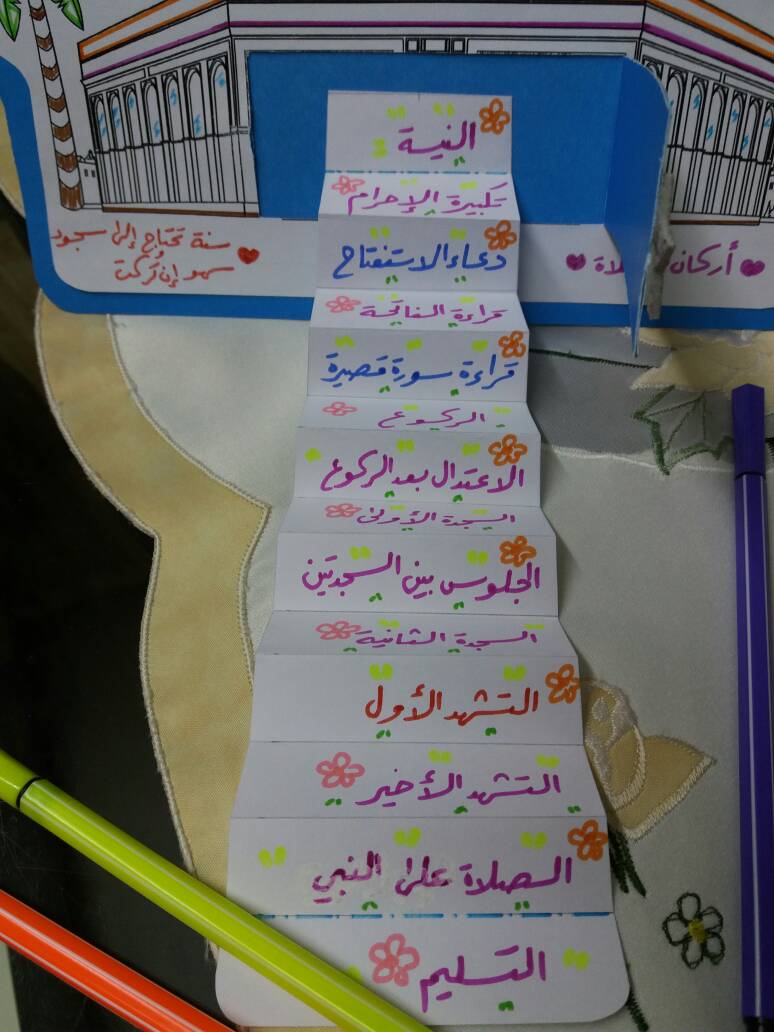 النية
تكبيرة الإحرام
دعاء الاستفتاح
قراءة الفاتحة
قراءة سورة قصيرة
الركوع
الاعتدال بعد الركوع
السجدة الأولى
الجلوس بين السجدتين
السجدة الثانية
التشهد الأول
التشهد الأخير
الصلاة على النبي
التسليم
أركان
سنة تحتاج إلى سجود
سهو إن تركت